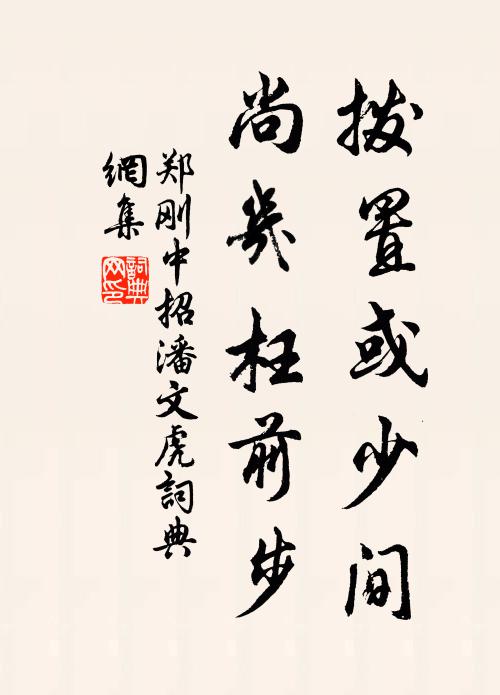 拨置或少间
尚几枉前步
郑刚中招潘文虎詞典
網集
詞典
网印